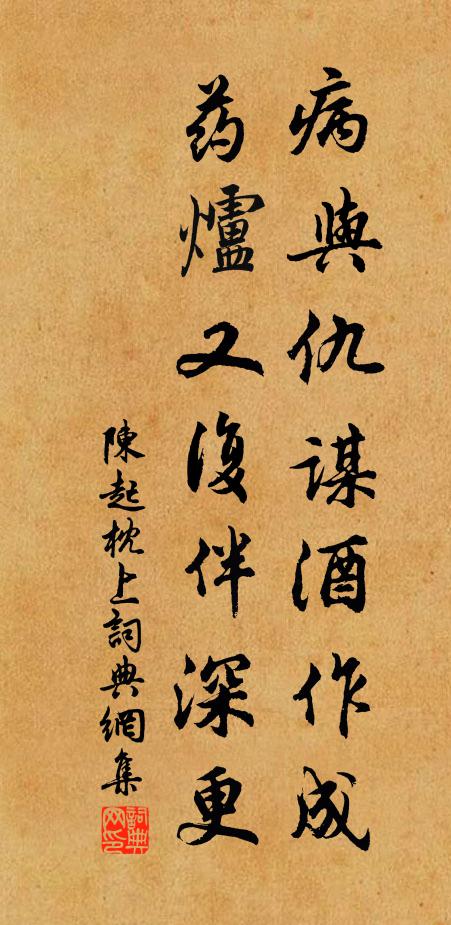 病與仇謀酒作成
药爐又復伴深更
陳起枕上詞典網集
詞典網印